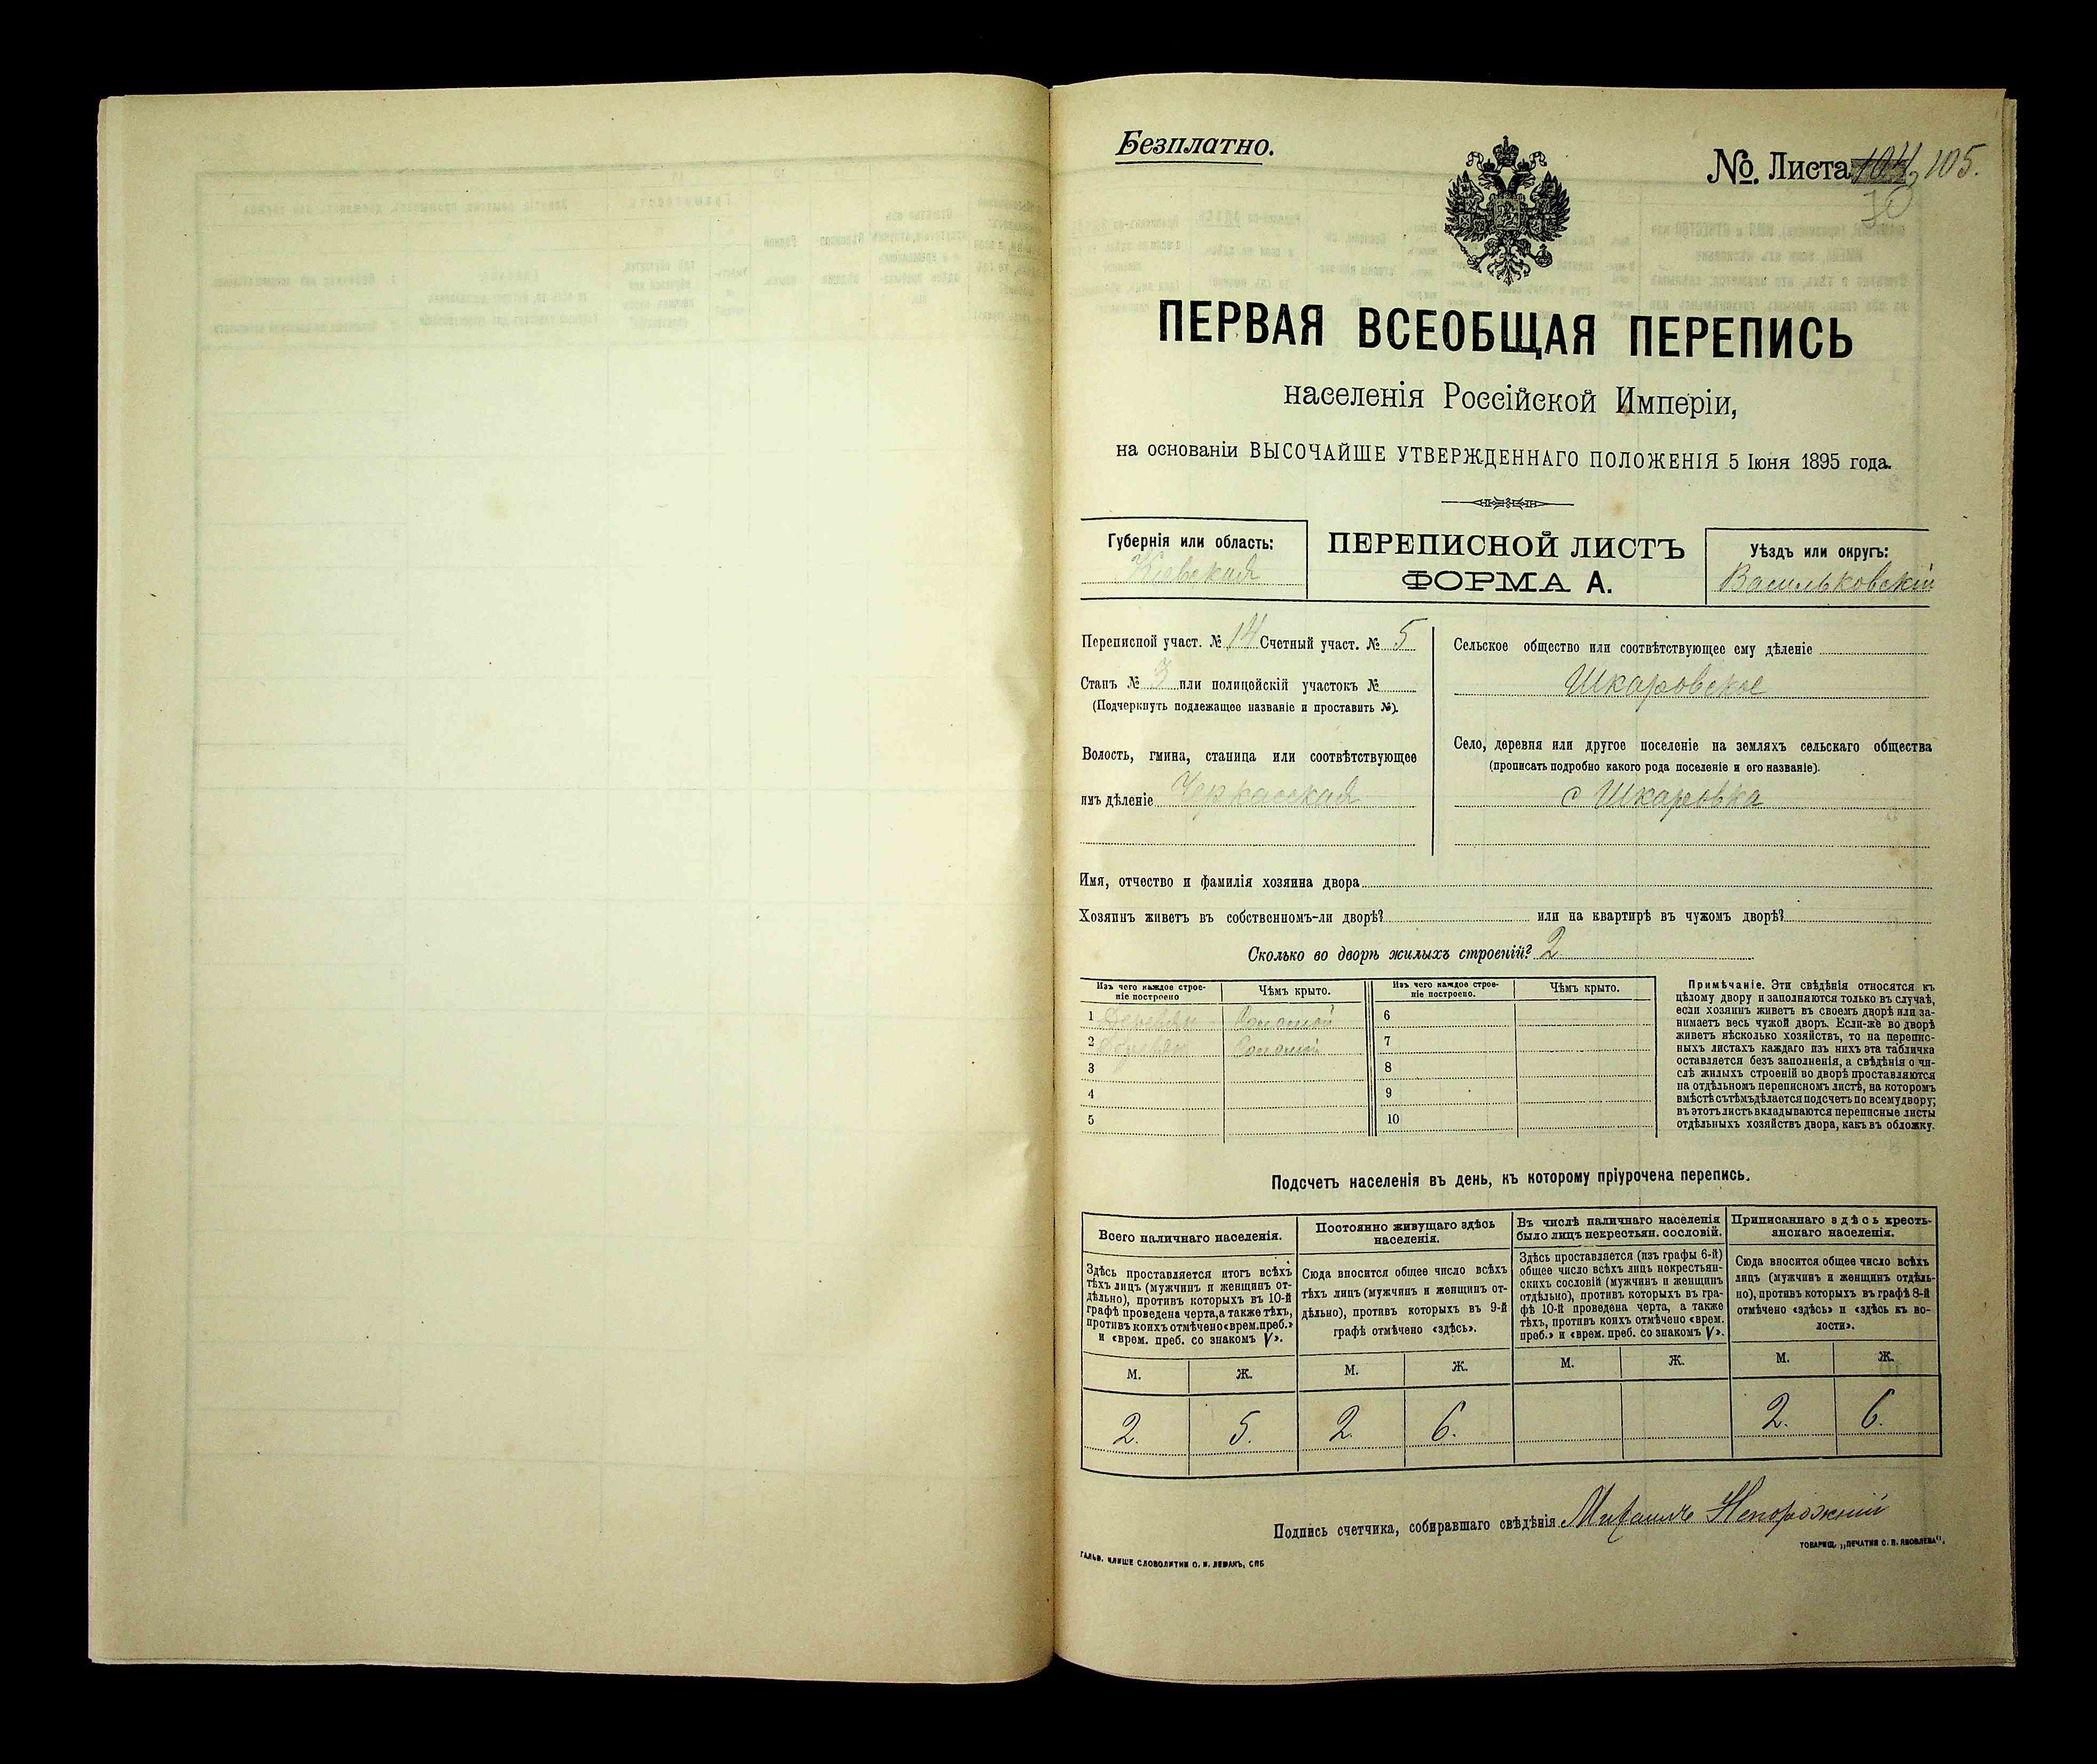 Безплатно.
№. Листа 105.
ПЕРВАЯ ВСЕОБЩАЯ ПЕРЕПИСЬ
населенія Россійской Имперіи,
на основаніи ВЫСОЧАЙШЕ УТВЕРЖДЕННАГО ПОЛОЖЕНІЯ 5 Іюня 1895 года.
Губернія или область:
Кіевская
ПЕРЕПИСНОЙ ЛИСТЪ
ФОРМА А.
Уѣздъ или округъ:
Васильковскій
Переписной участ. № 14 Счетный участ. № 5
Станъ № 3 или полицейскій участокъ №
(Подчеркнуть подлежащее названіе и проставить №).
Волость, гмина, станица или соотвѣтствующее
имъ дѣленіе Черкасская
Сельское общество или соотвѣтствующее ему дѣленіе
Шкаровское
Село, деревня или другое поселеніе на земляхъ сельскаго общества
(прописать подробно какого рода поселеніе и его названіе).
с Шкаровка
Имя, отчество и фамилія хозяина двора
Хозяинъ живетъ въ собственномъ-ли дворѣ? или на квартирѣ въ чужомъ дворѣ?
Сколько во дворѣ жилыхъ строеній? 2
Изъ чего каждое строе-
ніе построено
Чѣмъ крыто.
Изъ чего каждое строе-
ніе построено.
Чѣмъ крыто.
1 Соломой 6
2 Соломой 7
3 8
4 9
5 10
Примѣчаніе. Эти свѣдѣнія относятся къ
цѣлому двору и заполняются только въ случаѣ,
если хозяинъ живетъ въ своемъ дворѣ или за-
нимаетъ весь чужой дворъ. Если-же во дворѣ
живетъ нѣсколько хозяйствъ, то на перепис-
ныхъ листахъ каждаго изъ нихъ эта табличка
оставляется безъ заполненія, а свѣдѣнія о чи-
слѣ жилыхъ строеній во дворѣ проставляются
на отдѣльномъ переписномъ листѣ, на которомъ
вмѣстѣ съ тѣмъ дѣлается подсчетъ по всему двору;
въ этотъ листъ вкладываются переписные листы
отдѣльныхъ хозяйствъ двора, какъ въ обложку.
Подсчетъ населенія въ день, къ которому пріурочена перепись.
Всего наличнаго населенія.
Здѣсь проставляется итогъ всѣхъ
тѣхъ лицъ (мужчинъ и женщинъ от-
дѣльно), противъ которыхъ въ 10-й
графѣ проведена черта, а также тѣхъ,
противъ коихъ отмѣчено «врем. преб.»
и «врем. преб. со знакомъ V».
Постоянно живущаго здѣсь
населенія.
Сюда вносится общее число всѣхъ
тѣхъ лицъ (мужчинъ и женщинъ от-
дѣльно), противъ которыхъ въ 9-й
графѣ отмѣчено «здѣсь».
Въ числѣ наличнаго населенія
было лицъ некрестьян. сословій.
Здѣсь проставляется (изъ графы 6-й)
общее число всѣхъ лицъ некрестьян-
скихъ сословій (мужчинъ и женщинъ
отдѣльно), противъ которыхъ въ гра-
фѣ 10-й проведена черта, а также
тѣхъ, противъ коихъ отмѣчено «врем.
преб.» и «врем. преб. со знакомъ V».
Приписаннаго здѣсь кресть-
янскаго населенія.
Сюда вносится общее число всѣхъ
лицъ (мужчинъ и женщинъ отдѣль-
но), противъ которыхъ въ графѣ 8-й
отмѣчено «здѣсь» и «здѣсь къ во-
лости».
М. Ж. М. Ж. М. Ж. М. Ж.
2. 5. 2. 6. 2. 6.
Подпись счетчика, собиравшаго свѣдѣнія Михаилъ Непорожній
ГАЛЬВ. КЛИШЕ СЛОВОЛИТНИ О. И. ЛЕМАНЪ, СПБ
ТОВАРИЩ. „ПЕЧАТНЯ С. П. ЯКОВЛЕВА“.